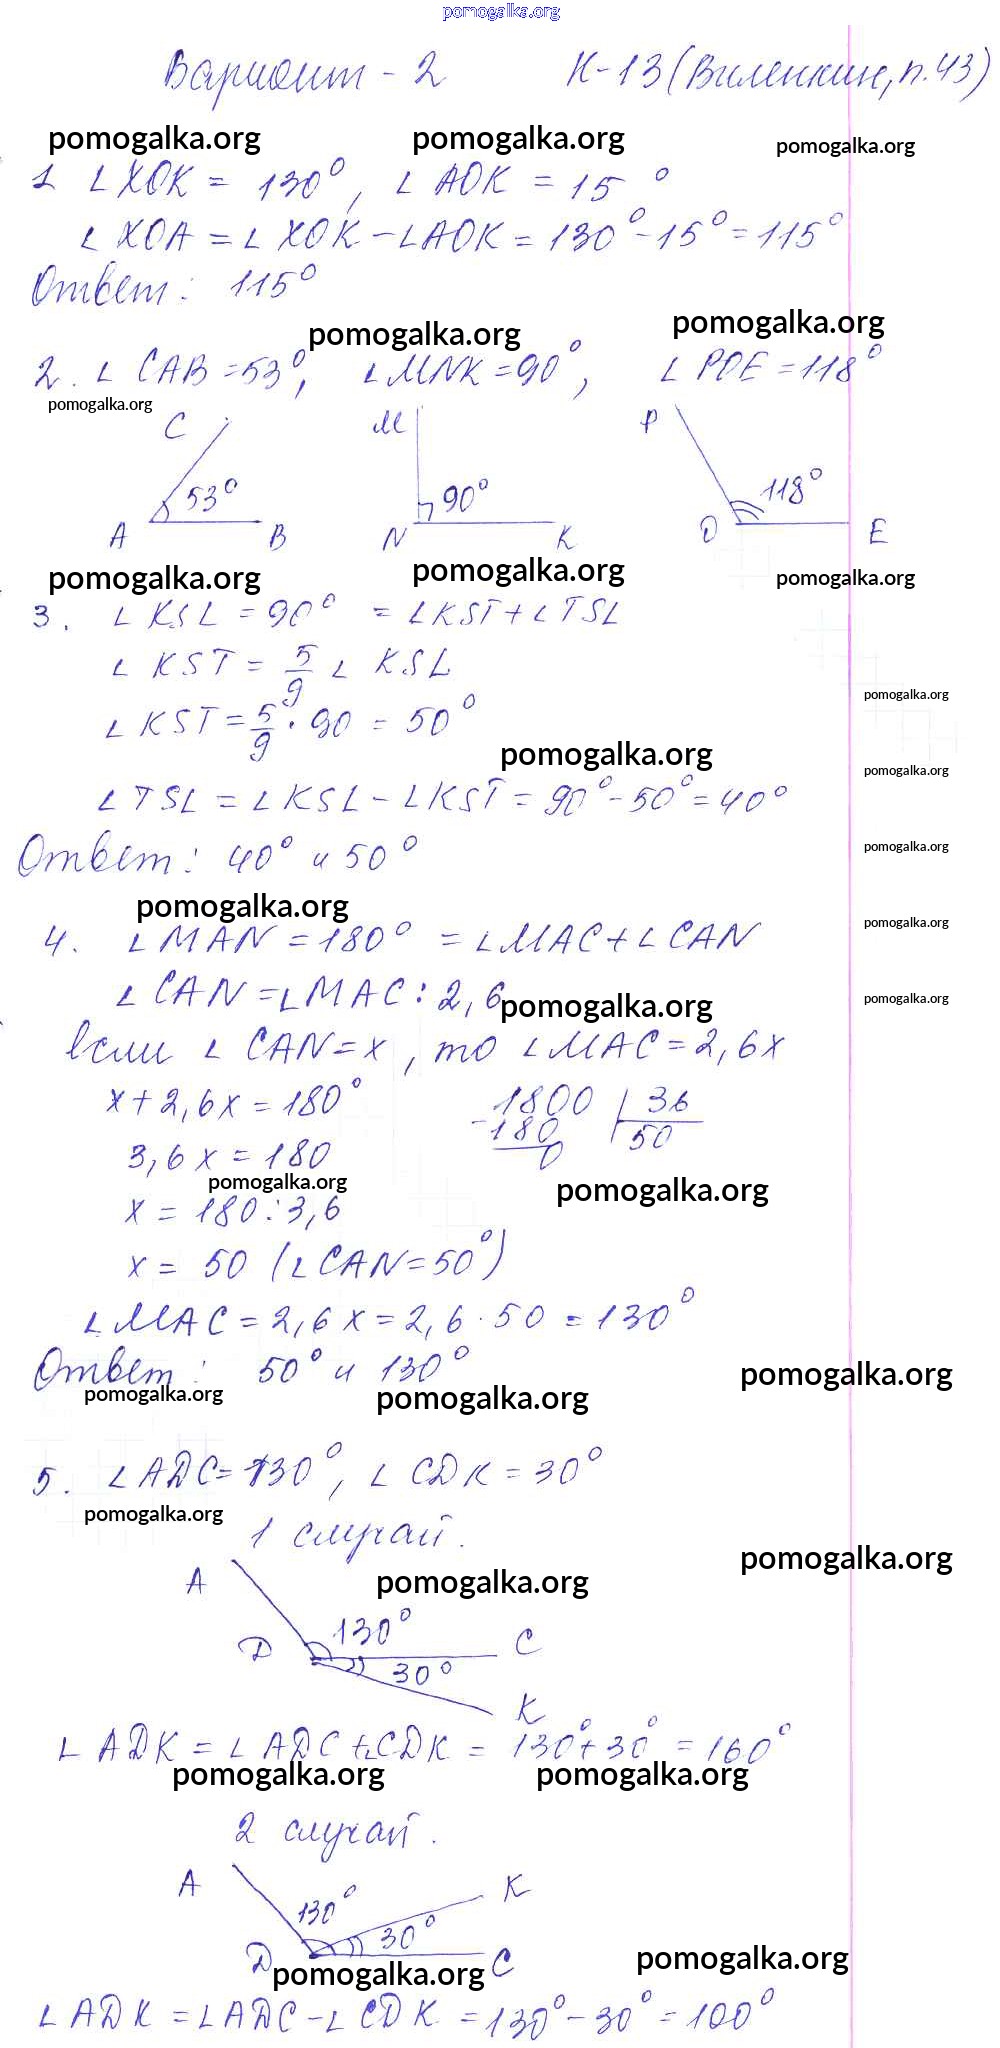 pomogalka.org
Вариант - 2 К-13 (Виленкин, п.43)
pomogalka.org pomogalka.org pomogalka.org
1 ∠ XOK = 130°, ∠ AOK = 15°
∠ XOA = ∠ XOK - ∠AOK = 130° - 15° = 115°
Ответ: 115°
pomogalka.org pomogalka.org
2. ∠ CAB = 53°, ∠ MNK = 90°, ∠ POE = 118°
pomogalka.org
C M P
53° 90° 118°
A B N K O E
pomogalka.org pomogalka.org pomogalka.org
3. ∠ KSL = 90° = ∠KST + ∠ TSL
∠ KST = 5/9 ∠ KSL
pomogalka.org
∠ KST = 5/9 · 90 = 50°
pomogalka.org
pomogalka.org
∠ TSL = ∠ KSL - ∠KST = 90° - 50° = 40°
Ответ: 40° и 50°
pomogalka.org
pomogalka.org
pomogalka.org
4. ∠ MAN = 180° = ∠MAC + ∠ CAN
∠ CAN = ∠MAC : 2,6
pomogalka.org
pomogalka.org
если ∠ CAN = x, то ∠MAC = 2,6x
x + 2,6x = 180° 1800 | 36
-180 50
3,6x = 180 0
pomogalka.org pomogalka.org
x = 180 : 3,6
x = 50 (∠ CAN = 50°)
∠MAC = 2,6x = 2,6 · 50 = 130°
Ответ: 50° и 130°
pomogalka.org pomogalka.org pomogalka.org
5. ∠ADC = 130°, ∠ CDK = 30°
pomogalka.org
1 случай.
pomogalka.org
A pomogalka.org
130°
D C
30°
K
∠ ADK = ∠ ADC + ∠CDK = 130° + 30° = 160°
pomogalka.org pomogalka.org
2 случай.
A K
130°
30°
D C
pomogalka.org pomogalka.org
∠ ADK = ∠ADC - ∠ CDK = 130° - 30° = 100°